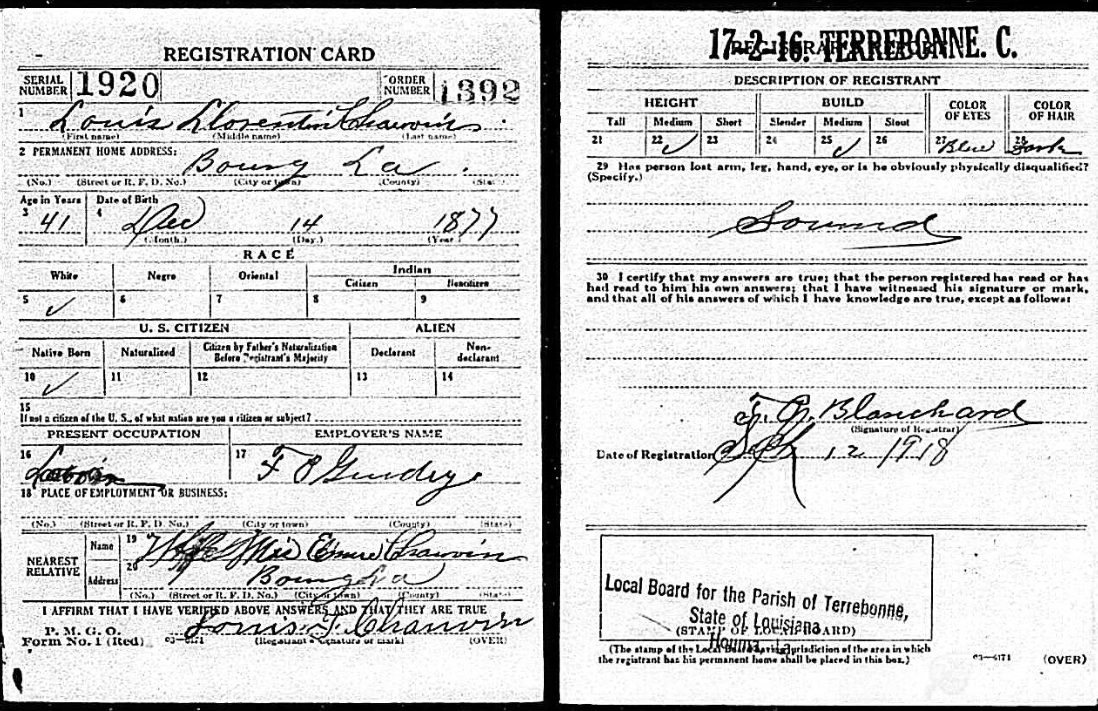 REGISTRATION CARD
SERIAL NUMBER 1920 ORDER NUMBER 1392
1 Louis Florentin Chauvin
(First name) (Middle name) (Last name)
2 PERMANENT HOME ADDRESS:
Bourg La.
(No.) (Street or R. F. D. No.) (City or town) (County) (State)
Age in Years Date of Birth
3 41 4 Dec 14 1877
(Month.) (Day.) (Year.)
RACE
White Negro Oriental Indian
Citizen Noncitizen
5 ✓ 6 7 8 9
U. S. CITIZEN ALIEN
Native Born Naturalized Citizen by Father's Naturalization Before Registrant's Majority Declarant Non-declarant
10 ✓ 11 12 13 14
15
If not a citizen of the U. S., of what nation are you a citizen or subject?
PRESENT OCCUPATION EMPLOYER'S NAME
16 17 F P
18 PLACE OF EMPLOYMENT OR BUSINESS:
(No.) (Street or R. F. D. No.) (City or town) (County) (State)
NEAREST RELATIVE Name 19 Wife Mrs Chauvin
Address 20 Bourg La
(No.) (Street or R. F. D. No.) (City or town) (County) (State)
I AFFIRM THAT I HAVE VERIFIED ABOVE ANSWERS AND THAT THEY ARE TRUE
P. M. G. O.
Form No. 1 (Red) 03—6171 Louis F. Chauvin
(Registrant's signature or mark) (OVER)
17-2-16. TERREBONNE. C.
REGISTRAR'S REPORT
DESCRIPTION OF REGISTRANT
HEIGHT BUILD COLOR OF EYES COLOR OF HAIR
Tall Medium Short Slender Medium Stout
21 22 ✓ 23 24 25 ✓ 26 27 Blue 28 Dark
29 Has person lost arm, leg, hand, eye, or is he obviously physically disqualified?
(Specify.)
Sound
30 I certify that my answers are true; that the person registered has read or has
had read to him his own answers; that I have witnessed his signature or mark,
and that all of his answers of which I have knowledge are true, except as follows:
Blanchard
(Signature of Registrar)
Date of Registration Sept 12 1918
Local Board for the Parish of Terrebonne,
State of Louisiana
(STAMP OF LOCAL BOARD)
Houma, La.
(The stamp of the Local Board having jurisdiction of the area in which
the registrant has his permanent home shall be placed in this box.)
03—6171 (OVER)